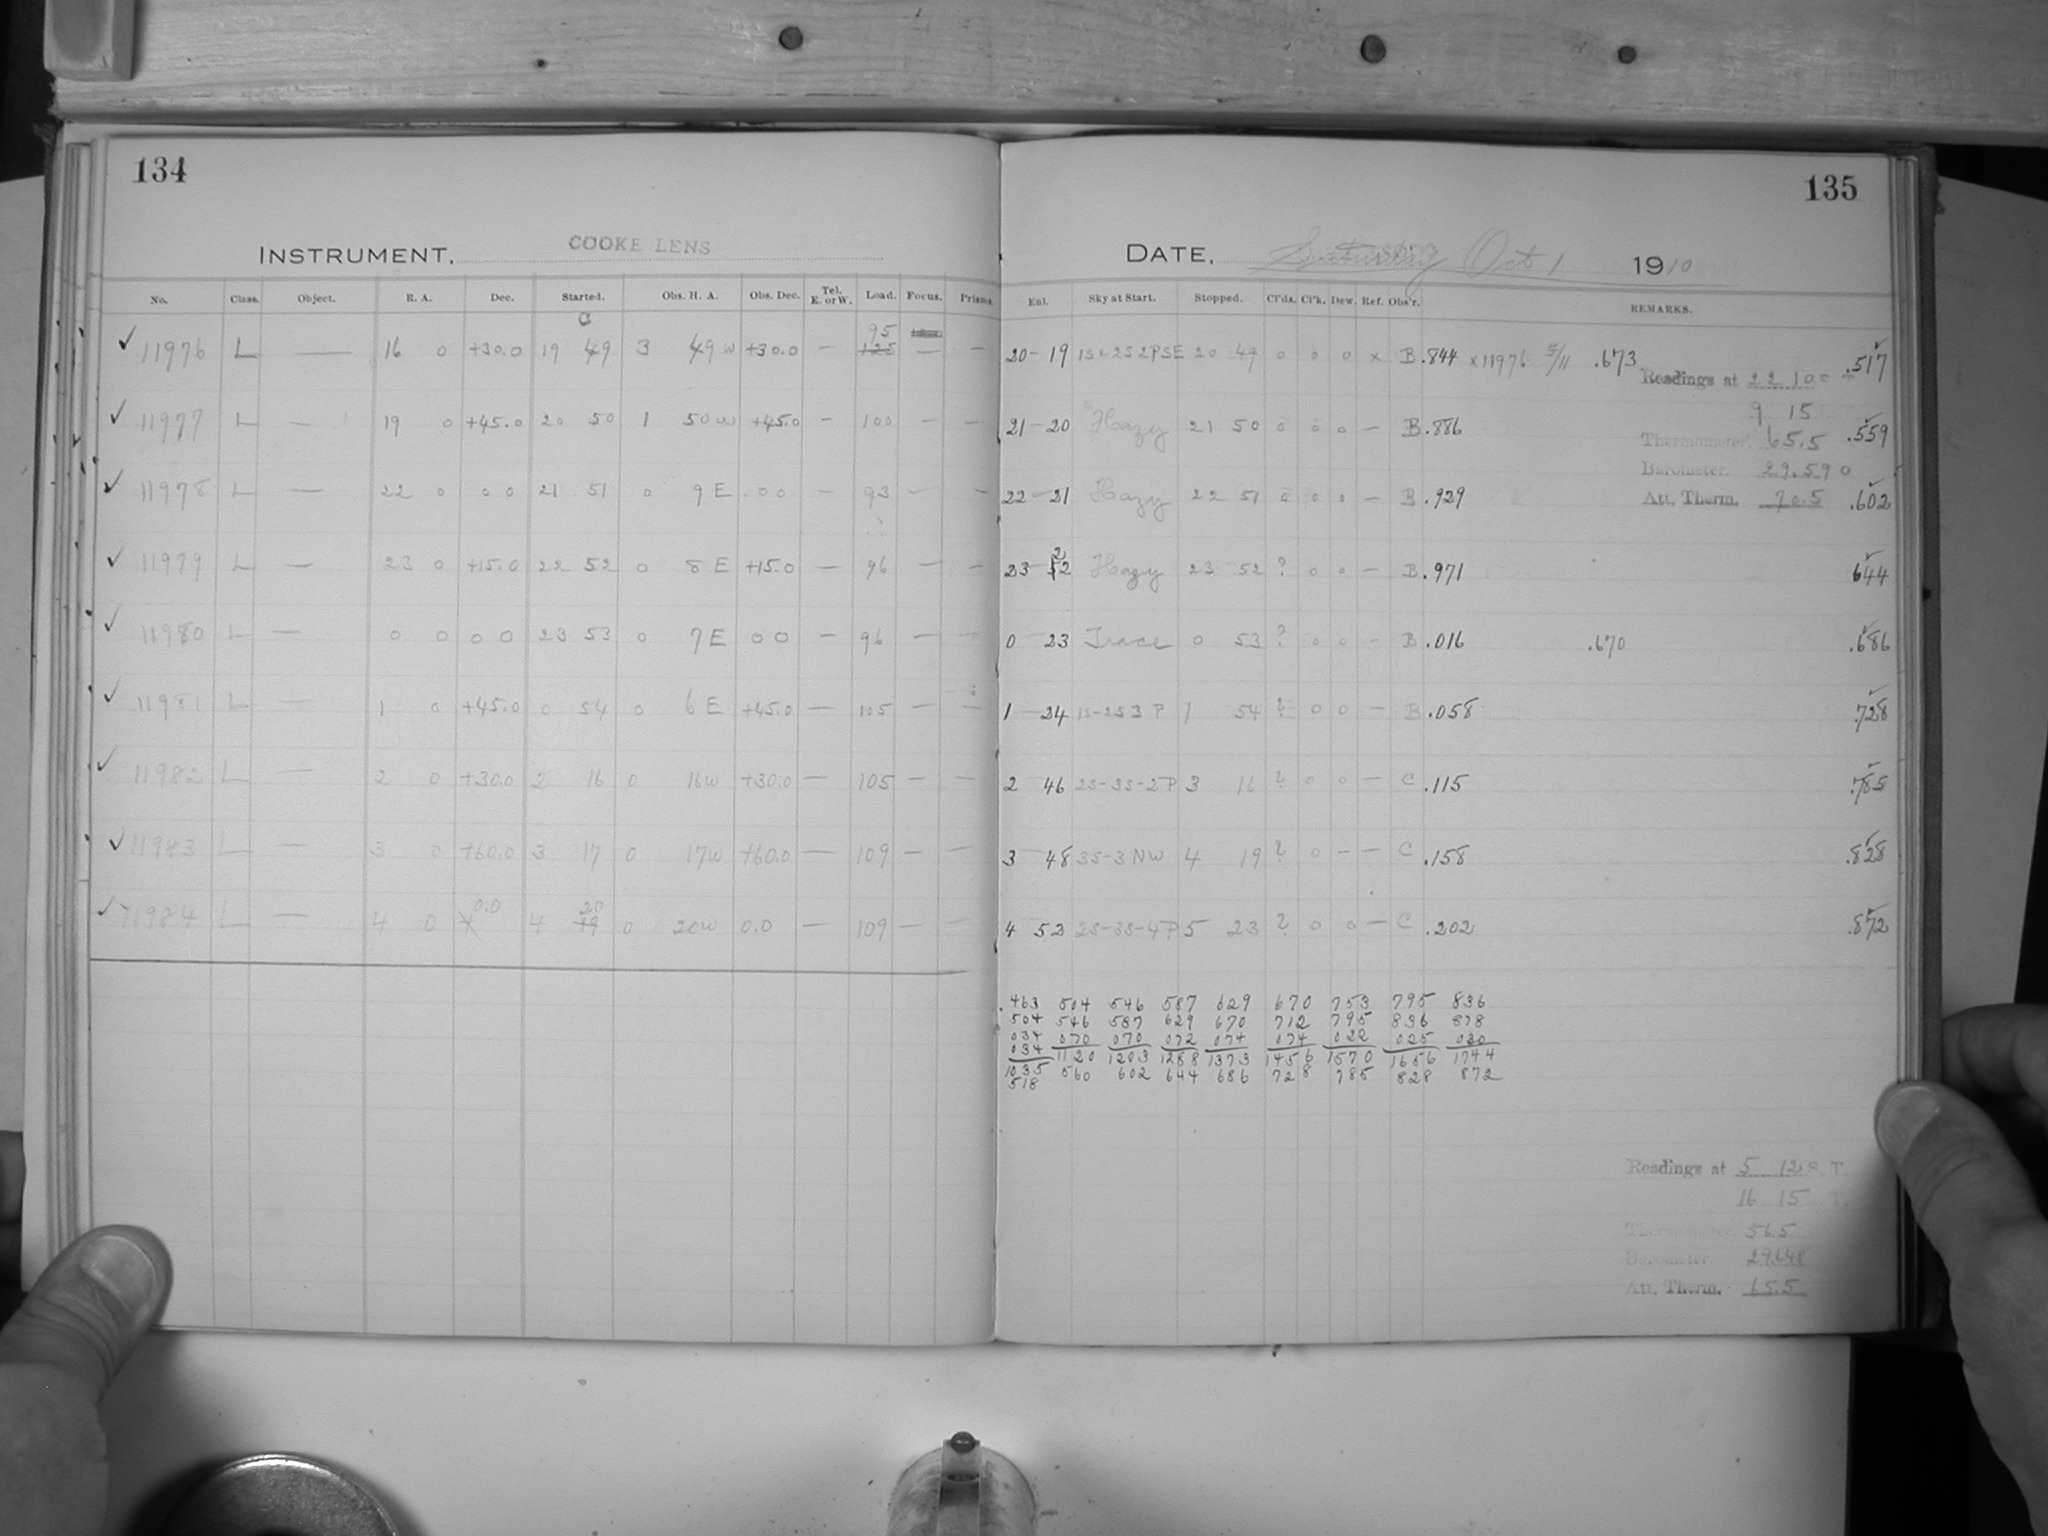 134
INSTRUMENT, COOKE LENS
No. Class. Object. R. A. Dec. Started. Obs. H. A. Obs. Dec. Tel. E. or W. Load. Focus. Prisms.
✓ 11976 L — 16 0 +30.0 19 49 3 49 W +30.0 — 95 125 — —
✓ 11977 L — 19 0 +45.0 20 50 1 50 W +45.0 — 100 — —
✓ 11978 L — 22 0 0 0 21 51 0 9 E 0 0 — 93 — —
✓ 11979 L — 23 0 +15.0 22 52 0 8 E +15.0 — 96 — —
✓ 11980 L — 0 0 0 0 23 53 0 7 E 0 0 — 96 — —
✓ 11981 L — 1 0 +45.0 0 54 0 6 E +45.0 — 105 — —
✓ 11982 L — 2 0 +30.0 2 16 0 16 W +30.0 — 105 — —
✓ 11983 L — 3 0 +60.0 3 17 0 17 W +60.0 — 109 — —
✓ 11984 L — 4 0 0.0 4 20 19 0 20 W 0.0 — 109 — —
135
DATE, Saturday Oct 1 1910
Enl. Sky at Start. Stopped. Cl'ds. Cl'k. Dew. Ref. Obs'r. REMARKS.
20-19 1S-2S 2PSE 20 49 0 0 0 x B .844 x11976 5/11 .673 .517
21-20 Hazy 21 50 0 0 0 — B .886 .559
22-21 Hazy 22 51 0 0 0 — B .929 .602
23-22 Hazy 23 52 ? 0 0 — B .971 644
0 23 Trace 0 53 ? 0 0 — B .016 .670 .686
1 24 1S-2S 3 P 1 54 ? 0 0 — B .058 .728
2 46 2S-3S-2P 3 16 ? 0 0 — C .115 .785
3 48 3S-3 NW 4 19 ? 0 — — C .158 .828
4 52 2S-3S-4P 5 23 ? 0 0 — C .202 .872
Readings at 22 10
9 15
Thermometer. 65.5
Barometer. 29.590
Att. Therm. 70.5
.463 504 546 587 629 670 753 795 836
504 546 587 629 670 712 795 836 878
034 070 070 072 074 074 022 025 030
034 1120 1203 1288 1373 1456 1570 1656 1744
1035 560 602 644 686 728 785 828 872
518
Readings at 5 12 S. T.
16 15 T.
Thermometer. 56.5
Barometer. 29.648
Att. Therm. 15.5